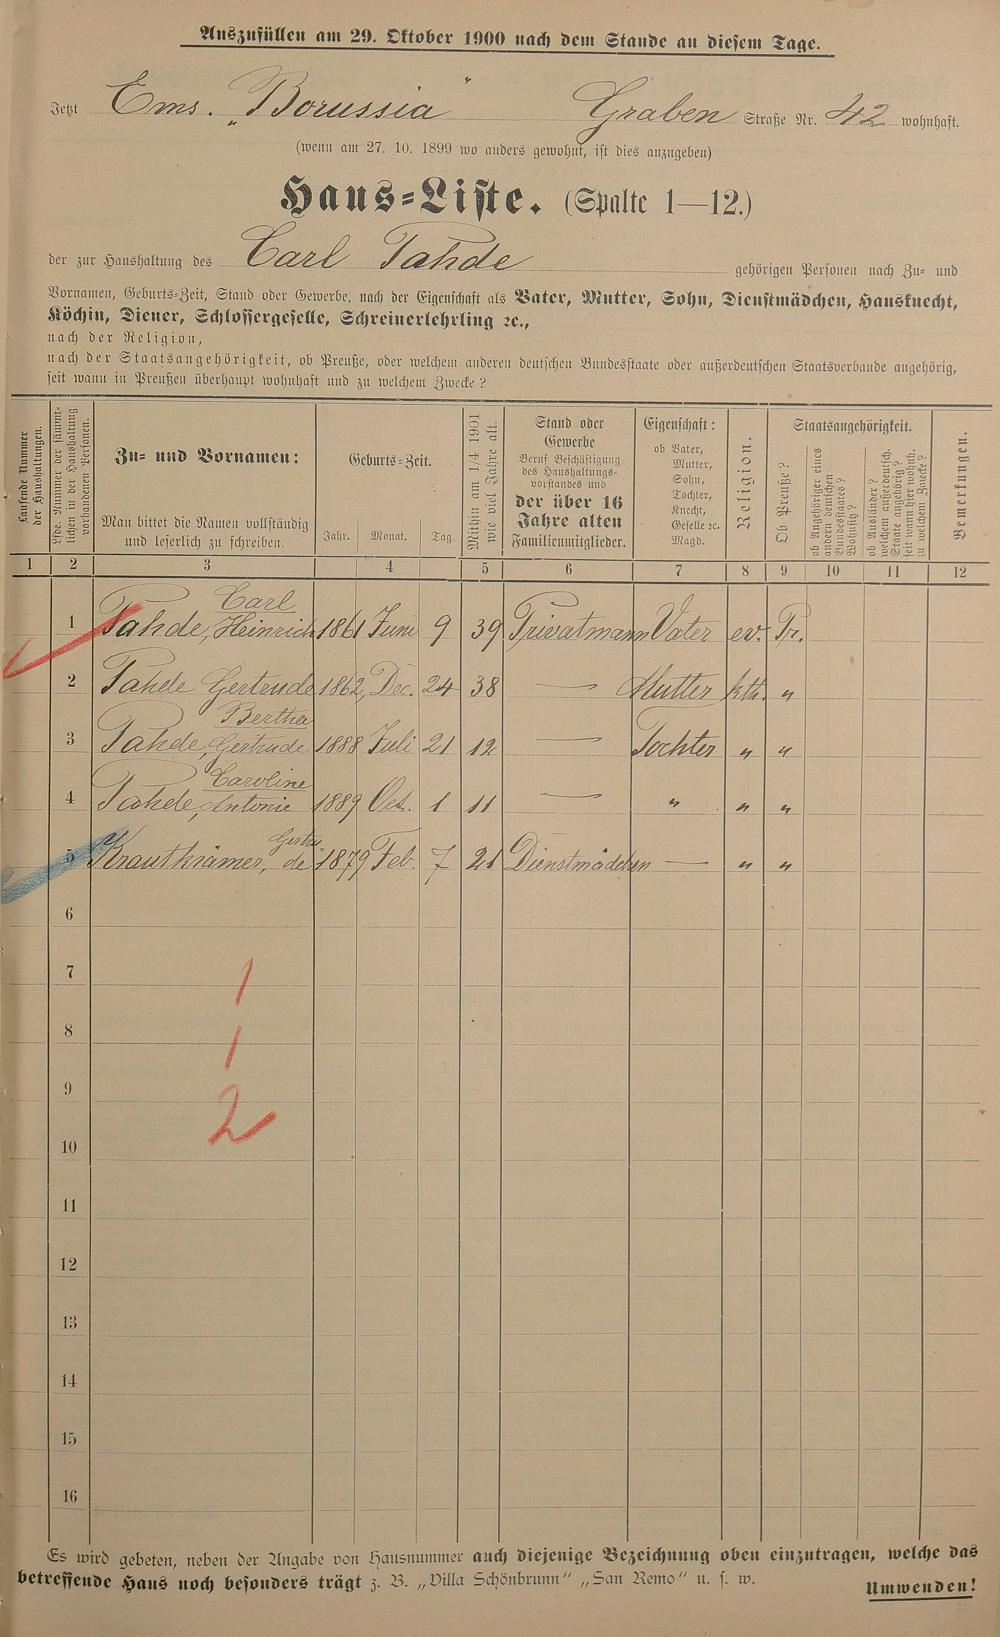 Auszufüllen am 29. Oktober 1900 nach dem Stande an diesem Tage.
Jetzt Ems. „Borussia" Graben Straße Nr. 42 wohnhaft.
(wenn am 27. 10. 1899 wo anders gewohnt, ist dies anzugeben)
Haus=Liste. (Spalte 1—12.)
der zur Haushaltung des Carl Tahde gehörigen Personen nach Zu= und
Vornamen, Geburts=Zeit, Stand oder Gewerbe, nach der Eigenschaft als Vater, Mutter, Sohn, Dienstmädchen, Hausknecht,
Köchin, Diener, Schlossergeselle, Schreinerlehrling ꝛc.,
nach der Religion,
nach der Staatsangehörigkeit, ob Preuße, oder welchem anderen deutschen Bundesstaate oder außerdeutschen Staatsverbande angehörig,
seit wann in Preußen überhaupt wohnhaft und zu welchem Zwecke?
Laufende Nummer
der Haushaltungen.
Lfde. Nummer der sämmt=
lichen in der Haushaltung
vorhandenen Personen.
Zu= und Vornamen:
Man bittet die Namen vollständig
und leserlich zu schreiben.
Geburts=Zeit.
Jahr. Monat. Tag.
Mithin am 1/4 1901
wie viel Jahre alt.
Stand oder
Gewerbe
Beruf Beschäftigung
des Haushaltungs=
vorstandes und
der über 16
Jahre alten
Familienmitglieder.
Eigenschaft:
ob Vater,
Mutter,
Sohn,
Tochter,
Knecht,
Geselle ꝛc.
Magd.
Religion.
Staatsangehörigkeit.
Ob Preuße?
ob Angehöriger eines
andern deutschen
Bundesstaates?
Wohnsitz?
ob Ausländer?
welchem außerdeutsch.
Staate angehörig?
seit wann hier wohnh.
zu welchem Zwecke?
Bemerkungen.
1 2 3 4 5 6 7 8 9 10 11 12
Carl
1 Tahde, Heinrich 1861 Juni 9 39 Privatmann Vater ev. Pr.
2 Tahde Gertrude 1862, Dec. 24 38 — Mutter kth. "
Bertha
3 Tahde, Gertrude 1888 Juli 21 12 — Tochter " "
Caroline
4 Tahde, Antonie 1889 Oct. 1 11 — " " "
Gertru
5 Krautkrämer, de 1879 Feb. 7 21 Dienstmädchen — " "
6
7 1
8 1
9
2
10
11
12
13
14
15
16
Es wird gebeten, neben der Angabe von Hausnummer auch diejenige Bezeichnung oben einzutragen, welche das
betreffende Haus noch besonders trägt z. B. „Villa Schönbrunn" „San Remo" u. s. w.
Umwenden!